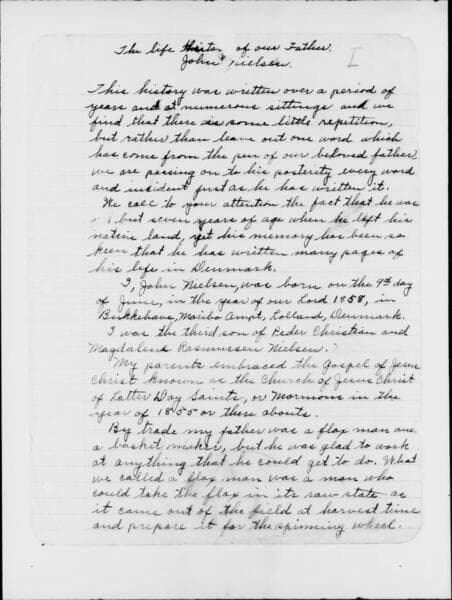 The life History of our Father.
I
John Nielsen.
This history was written over a period of
years and at numerous sittings and we
find that there is some little repetition,
but rather than leave out one word which
has come from the pen of our beloved father
we are passing on to his posterity every word
and incident just as he has written it.
We call to your attention the fact that he was
but seven years of age when he left his
native land, yet his memory has been so
keen that he has written many pages of
his life in Denmark.
I, John Nielsen, was born on the 9th day
of June, in the year of our Lord 1858, in
Birkkehave, Maribo Ampt, Lolland, Denmark.
I was the third son of Peder Christian and
Magdalena Rasmussen Nielsen.
My parents embraced the Gospel of Jesus
Christ known as the Church of Jesus Christ
of Latter Day Saints, or Mormons in the
year of 1855 or there abouts.
By trade my father was a flax man and
a basket maker, but he was glad to work
at anything that he could get to do. What
we called a flax man was a man who
could take the flax in its raw state as
it came out of the field at harvest time
and prepare it for the spinning wheel.